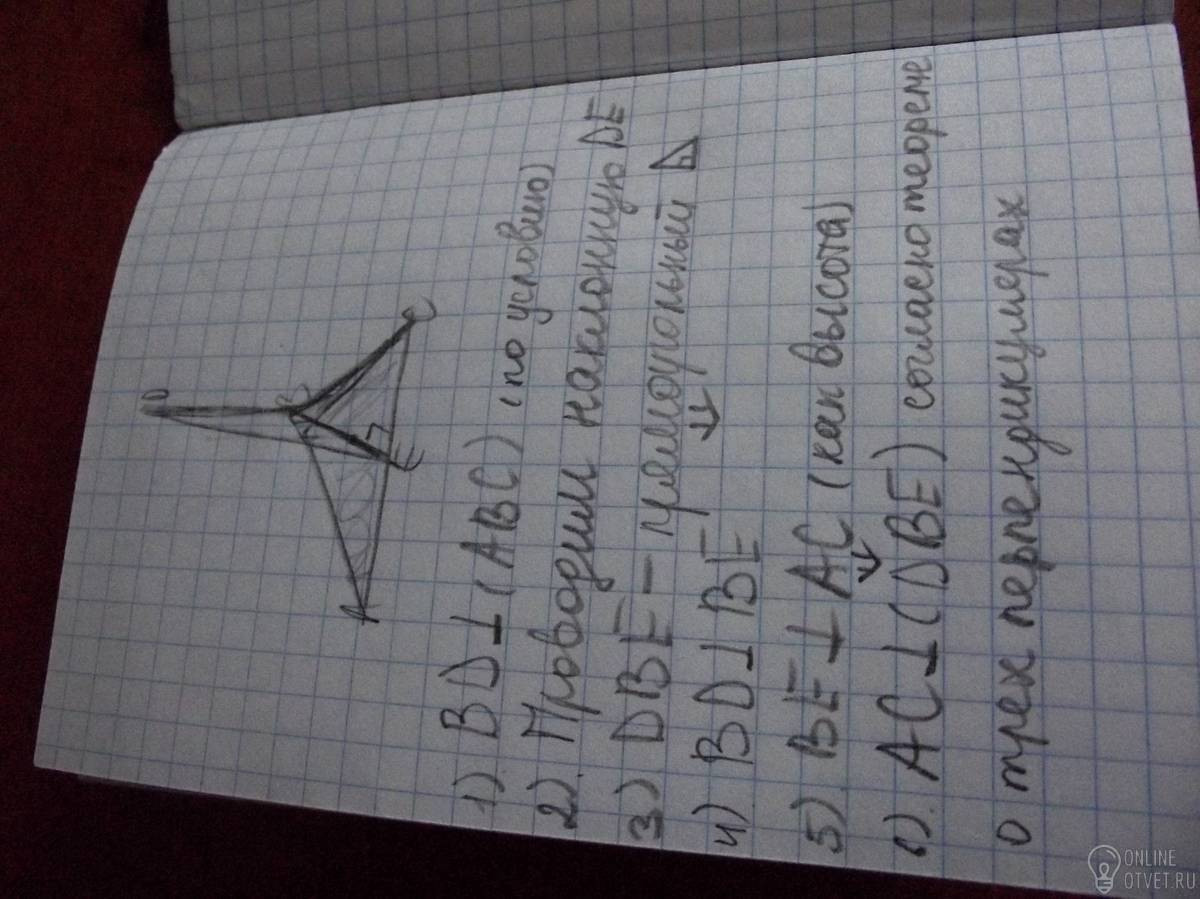 D
B
C
A
E
1). BD⊥(ABC) (по условию)
2). Проводим наклонную DE
3) DBE – прямоугольный Δ
4) BD⊥BE
5) BE⊥AC (как высота)
6). AC⊥(DBE) согласно теореме
о трех перпендикулярах
ONLINE
OTVET.RU